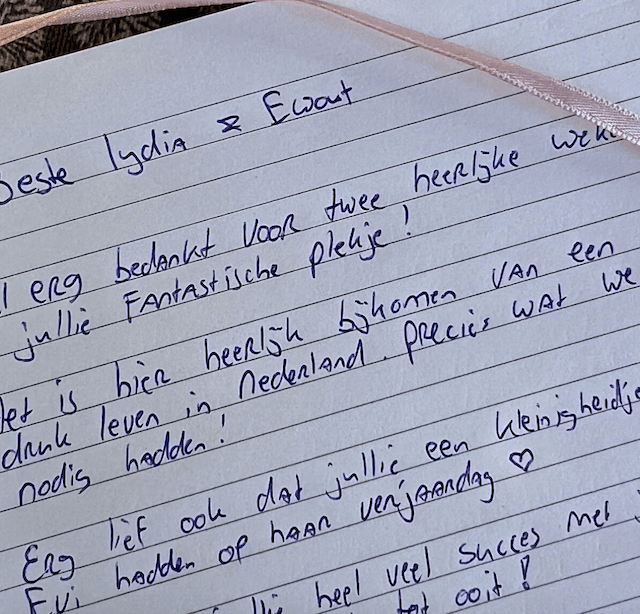 beste lydia & Ewout
erg bedankt voor twee heerlijke
jullie fantastische plekje!
Het is hier heerlijk bijkomen van een
druk leven in nederland. precies wat we
nodig hadden!
Erg lief ook dat jullie een kleinigheidje
Evi hadden op haar verjaardag ♡
heel veel succes met
tot ooit!